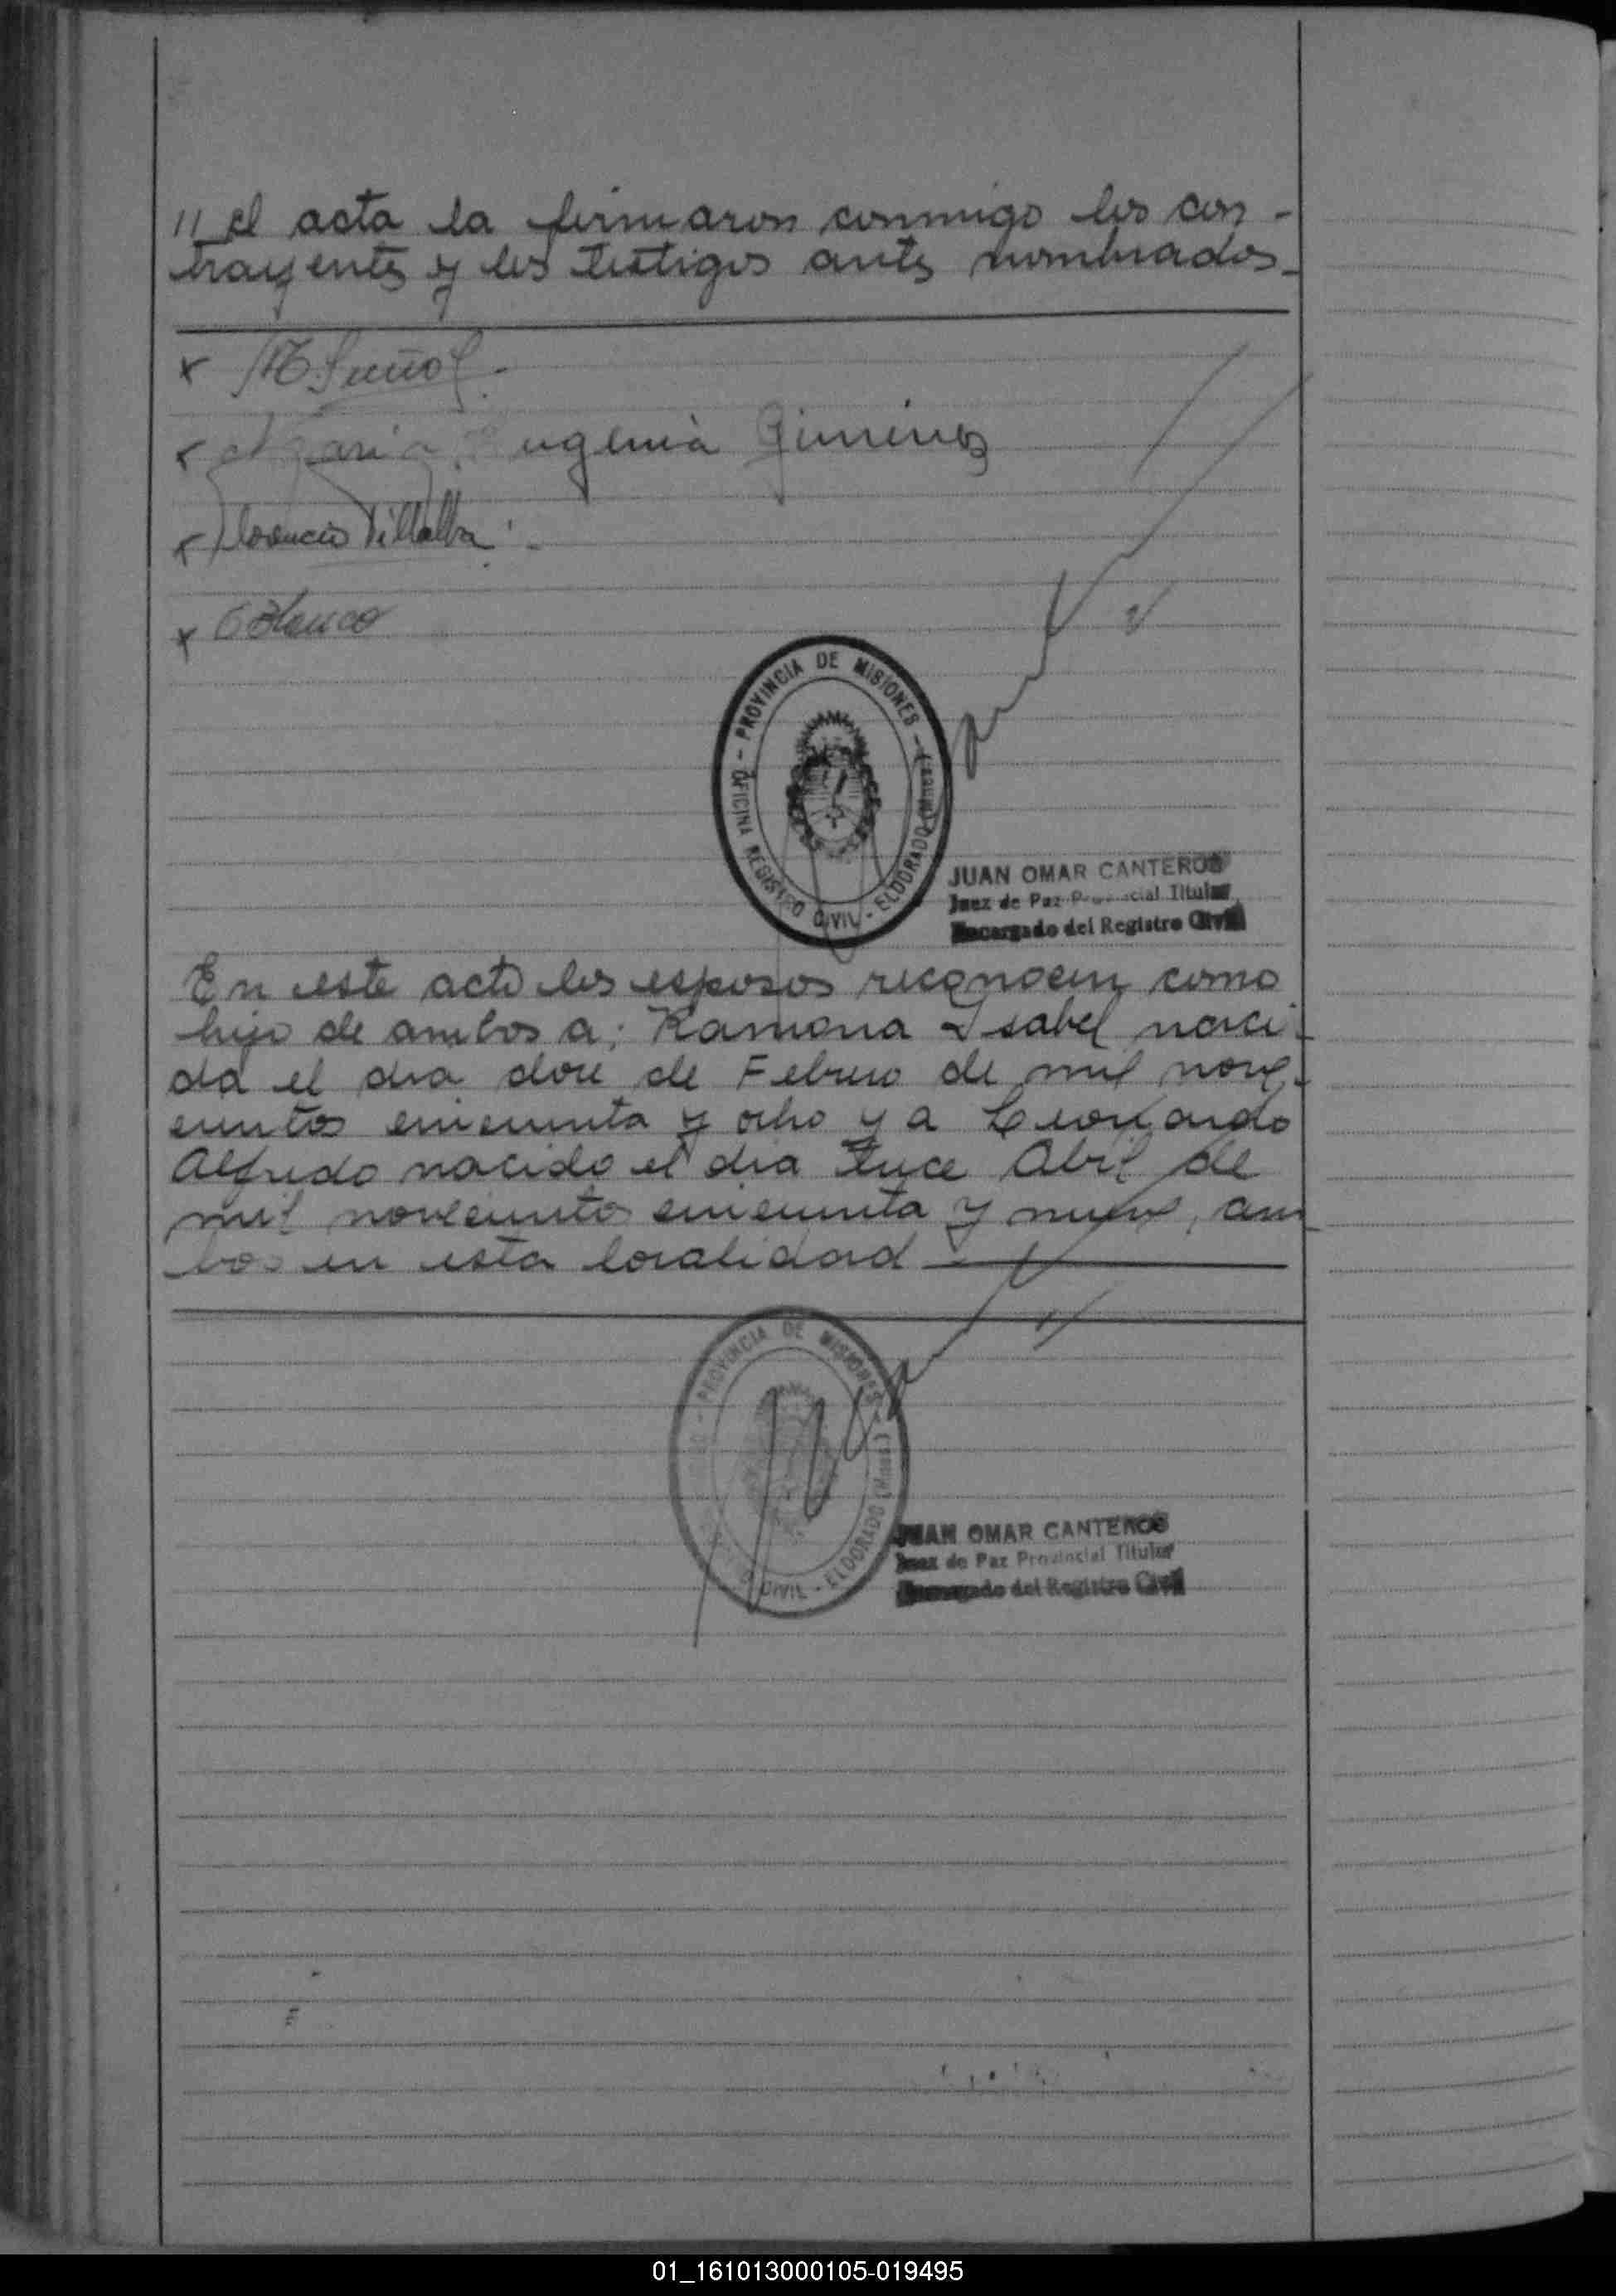 // el acta la firmaron conmigo los con-
trayentes y los testigos antes nombrados.
x
x Maria Eugenia Gimenez
x Florencio Villalba
x Blanco
- PROVINCIA DE MISIONES -
OFICINA REGISTRO CIVIL - ELDORADO (Mnes.)
JUAN OMAR CANTEROS
Juez de Paz Provincial Titular
Encargado del Registro Civil
En este acto los esposos reconocen como
hijo de ambos a: Ramona Isabel naci-
da el dia doce de Febrero de mil nove-
cientos cincuenta y ocho y a Leonardo
Alfredo nacido el dia trece Abril de
mil novecientos cincuenta y nueve, am
bos en esta localidad
PROVINCIA DE MISIONES
CIVIL - ELDORADO (Mnes.)
JUAN OMAR CANTEROS
Juez de Paz Provincial Titular
Encargado del Registro Civil
01_161013000105-019495